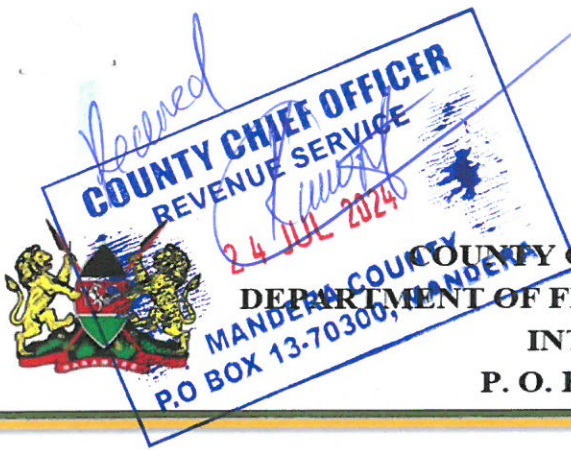 Received
COUNTY CHIEF OFFICER
REVENUE SERVICE
24 JUL 2024
MANDERA COUNTY
P.O BOX 13-70300, MANDERA
COUNTY
DEPARTMENT OF
P. O.